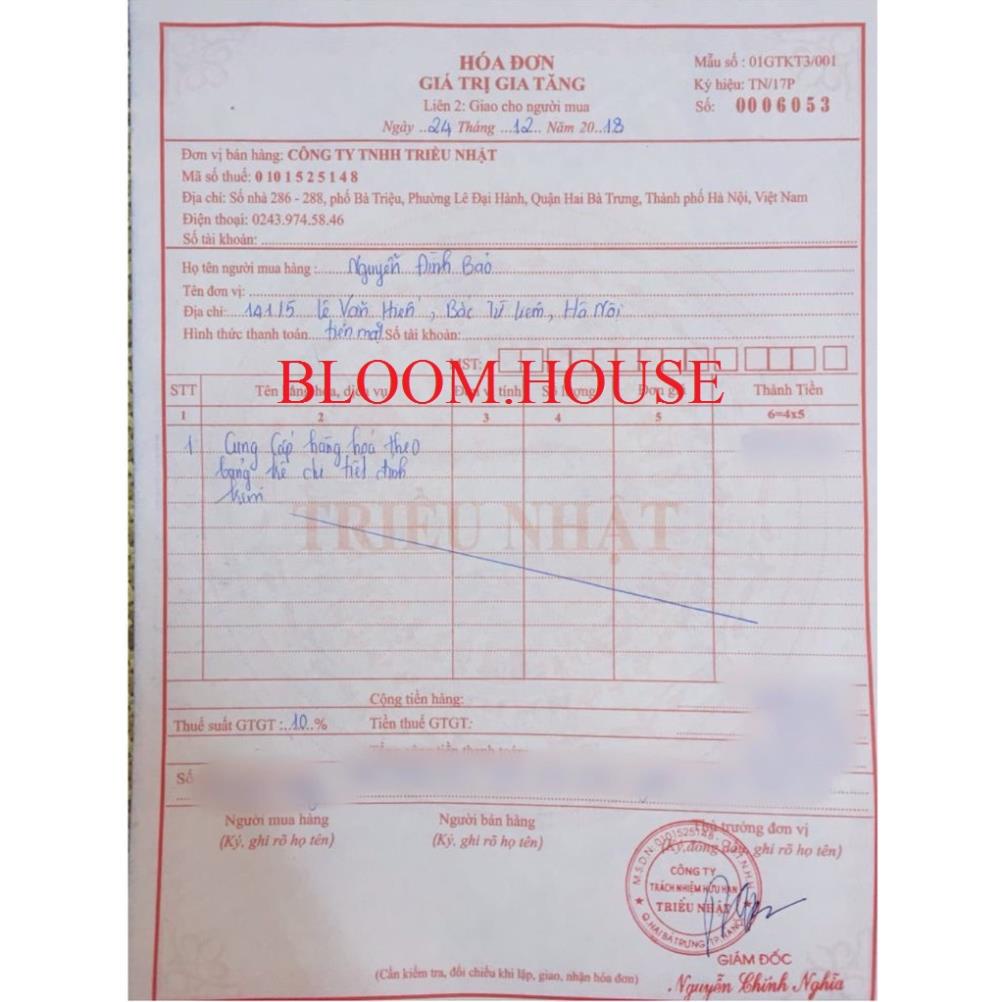 HÓA ĐƠN
GIÁ TRỊ GIA TĂNG
Liên 2: Giao cho người mua
Ngày ..24 Tháng ...12.. Năm 20..18
Mẫu số : 01GTKT3/001
Ký hiệu: TN/17P
Số: 0006053
Đơn vị bán hàng: CÔNG TY TNHH TRIỀU NHẬT
Mã số thuế: 0 1 0 1 5 2 5 1 4 8
Địa chỉ: Số nhà 286 - 288, phố Bà Triệu, Phường Lê Đại Hành, Quận Hai Bà Trưng, Thành phố Hà Nội, Việt Nam
Điện thoại: 0243.974.58.46
Số tài khoản:
Họ tên người mua hàng : Nguyễn Đình Bảo
Tên đơn vị:
Địa chỉ: 141/5 Lê Văn Hiến, Bắc Từ Liêm, Hà Nội
Hình thức thanh toán tiền mặt Số tài khoản:
MST:
BLOOM.HOUSE
STT Tên hàng hóa, dịch vụ Đơn vị tính Số lượng Đơn giá Thành Tiền
1 2 3 4 5 6=4x5
1 Cung cấp hàng hoá theo
bảng kê chi tiết đính
kèm
TRIỀU NHẬT
Cộng tiền hàng:
Thuế suất GTGT :..10..% Tiền thuế GTGT:
Số
Người mua hàng Người bán hàng Thủ trưởng đơn vị
(Ký, ghi rõ họ tên) (Ký, ghi rõ họ tên) (Ký, đóng dấu, ghi rõ họ tên)
M.S.D.N: 0101525148
CÔNG TY
TRÁCH NHIỆM HỮU HẠN
TRIỀU NHẬT
Q.HAI BÀ TRƯNG
GIÁM ĐỐC
Nguyễn Chính Nghĩa
(Cần kiểm tra, đối chiếu khi lập, giao, nhận hóa đơn)